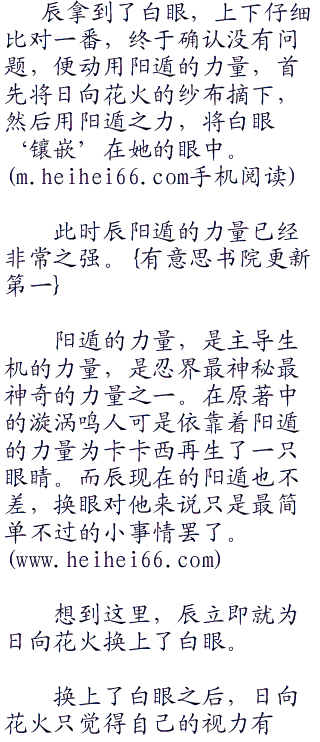 辰拿到了白眼，上下仔细
比对一番，终于确认没有问
题，便动用阳遁的力量，首
先将日向花火的纱布摘下，
然后用阳遁之力，将白眼
‘镶嵌’在她的眼中。
(m.heihei66.com手机阅读)
此时辰阳遁的力量已经
非常之强。{有意思书院更新
第一}
阳遁的力量，是主导生
机的力量，是忍界最神秘最
神奇的力量之一。在原著中
的漩涡鸣人可是依靠着阳遁
的力量为卡卡西再生了一只
眼睛。而辰现在的阳遁也不
差，换眼对他来说只是最简
单不过的小事情罢了。
(www.heihei66.com)
想到这里，辰立即就为
日向花火换上了白眼。
换上了白眼之后，日向
花火只觉得自己的视力有